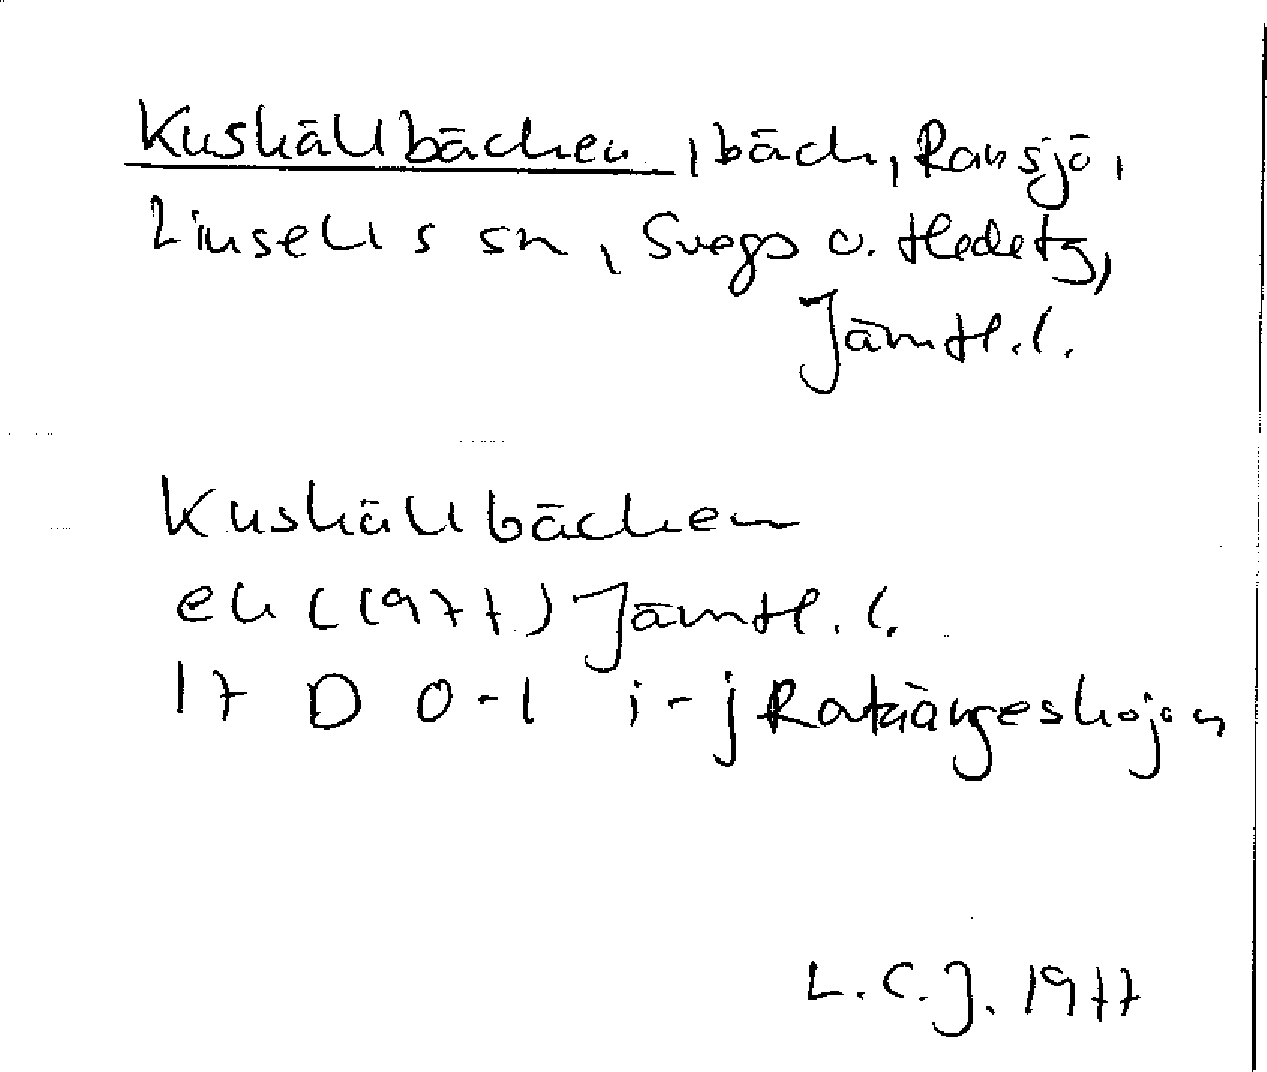 Kuskällbäcken, bäck, Ransjö,
Linsells sn, Svegs o. Hede tg,
Jämtl. l.
Kuskällbäcken
ek (1977) Jämtl. l.
17 D 0-1 i-j Ratkängeskojan
L.C.J. 1977